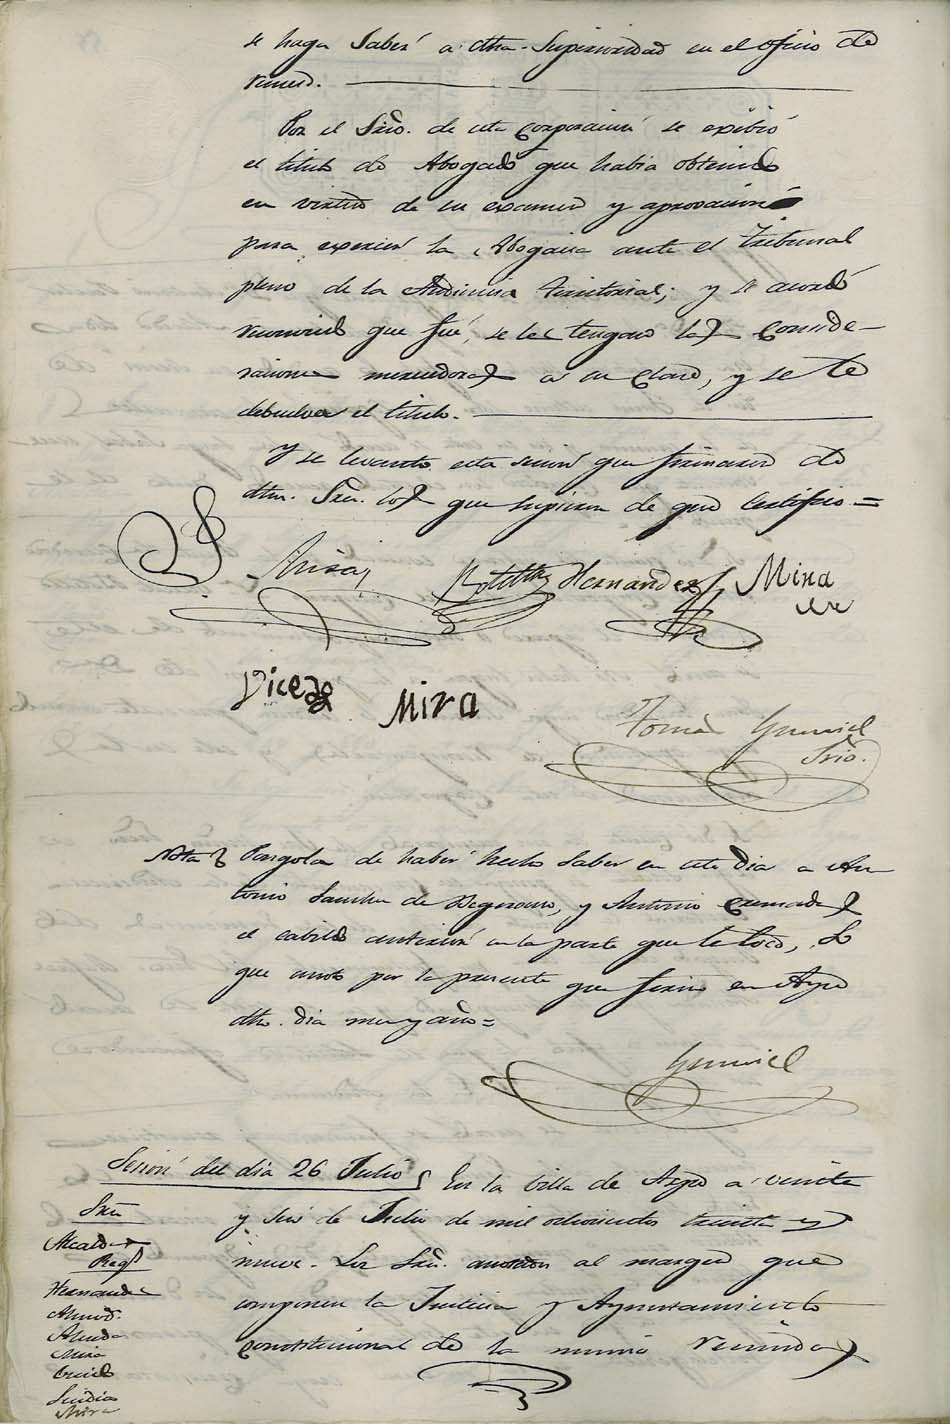 se haga Saber a dha. Superioridad en el oficio de
remis.
Por el Srio. de esta Corporacion se exibió
el titulo de Abogado que habia obtenido
en virtud de su examen y aprovacion
para exercer la Abogacia ante el Tribunal
pleno de la Audiencia Territorial; y se acordó
reconocido que fué, se le tengan las Conside-
raciones merecedoras a su Clase, y se le
debuelva el titulo.
Y se levantó esta sesion que firmaron de
dhos. Sres. los que supieron de que Certifico=
Hernandez Mira
Mira
Tomás
Srio.
Nota Pongola de haber hecho saber en este dia a An
tonio Sanchez de y Antonio
el cabildo anterior en la parte que le toca, Lo
que anoto por la presente que firmo en Aspe
dho. dia mes y año=
Sesion del dia 26 Julio En la villa de Aspe a veinte
y seis de Julio de mil ochocientos treinta y
nueve. Los Sres. anotados al margen que
componen la Justicia y Ayuntamiento
Constitucional de la misma reunidos
Sres.
Alcalde
Regs.
Hernandez
Almod.
Mira
Sindico
Mira